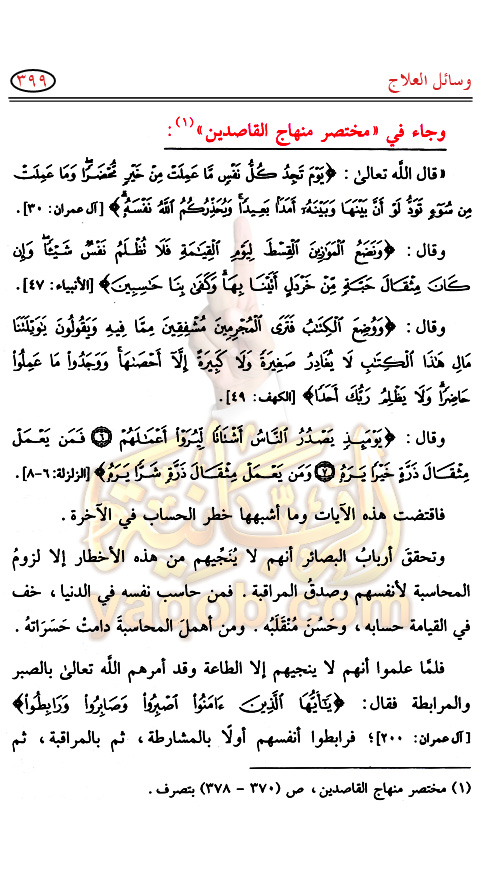 وسائل العلاج ٣٩٩
وجاء في «مختصر منهاج القاصدين»(١) :
«قال اللَّه تعالىٰ : ﴿يَوْمَ تَجِدُ كُلُّ نَفْسٍ مَّا عَمِلَتْ مِنْ خَيْرٍ مُّحْضَرًا وَمَا عَمِلَتْ
مِن سُوٓءٍ تَوَدُّ لَوْ أَنَّ بَيْنَهَا وَبَيْنَهُۥٓ أَمَدًۢا بَعِيدًا ۗ وَيُحَذِّرُكُمُ ٱللَّهُ نَفْسَهُۥ﴾ [آل عمران: ٣٠].
وقال : ﴿وَنَضَعُ ٱلْمَوَٰزِينَ ٱلْقِسْطَ لِيَوْمِ ٱلْقِيَٰمَةِ فَلَا تُظْلَمُ نَفْسٌ شَيْـًٔا ۖ وَإِن
كَانَ مِثْقَالَ حَبَّةٍ مِّنْ خَرْدَلٍ أَتَيْنَا بِهَا ۗ وَكَفَىٰ بِنَا حَٰسِبِينَ﴾ [الأنبياء: ٤٧].
وقال : ﴿وَوُضِعَ ٱلْكِتَٰبُ فَتَرَى ٱلْمُجْرِمِينَ مُشْفِقِينَ مِمَّا فِيهِ وَيَقُولُونَ يَٰوَيْلَتَنَا
مَالِ هَٰذَا ٱلْكِتَٰبِ لَا يُغَادِرُ صَغِيرَةً وَلَا كَبِيرَةً إِلَّآ أَحْصَىٰهَا ۚ وَوَجَدُوا۟ مَا عَمِلُوا۟
حَاضِرًا ۗ وَلَا يَظْلِمُ رَبُّكَ أَحَدًا﴾ [الكهف: ٤٩].
وقال : ﴿يَوْمَئِذٍ يَصْدُرُ ٱلنَّاسُ أَشْتَاتًا لِّيُرَوْا۟ أَعْمَٰلَهُمْ ٦ فَمَن يَعْمَلْ
مِثْقَالَ ذَرَّةٍ خَيْرًا يَرَهُۥ ٧ وَمَن يَعْمَلْ مِثْقَالَ ذَرَّةٍ شَرًّا يَرَهُۥ﴾ [الزلزلة: ٦-٨].
فاقتضت هذه الآيات وما أشبهها خطر الحساب في الآخرة .
وتحققَ أربابُ البصائر أنهم لا يُنَجِّيهم من هذه الأخطار إلا لزومُ
المحاسبة لأنفسهم وصدقُ المراقبة . فمن حاسب نفسه في الدنيا ، خف
في القيامة حسابه ، وحَسُنَ مُنْقَلَبُه . ومن أهملَ المحاسبةَ دامتْ حَسَرَاتهُ .
فلمَّا علموا أنهم لا ينجيهم إلا الطاعة وقد أمرهم اللَّه تعالىٰ بالصبر
والمرابطة فقال: ﴿يَٰٓأَيُّهَا ٱلَّذِينَ ءَامَنُوا۟ ٱصْبِرُوا۟ وَصَابِرُوا۟ وَرَابِطُوا۟﴾
[آل عمران: ٢٠٠]؛ فرابطوا أنفسهم أولًا بالمشارطة ، ثم بالمراقبة ، ثم
(١) مختصر منهاج القاصدين ، ص (٣٧٠ - ٣٧٨) بتصرف .
الربانية
yaqob.com